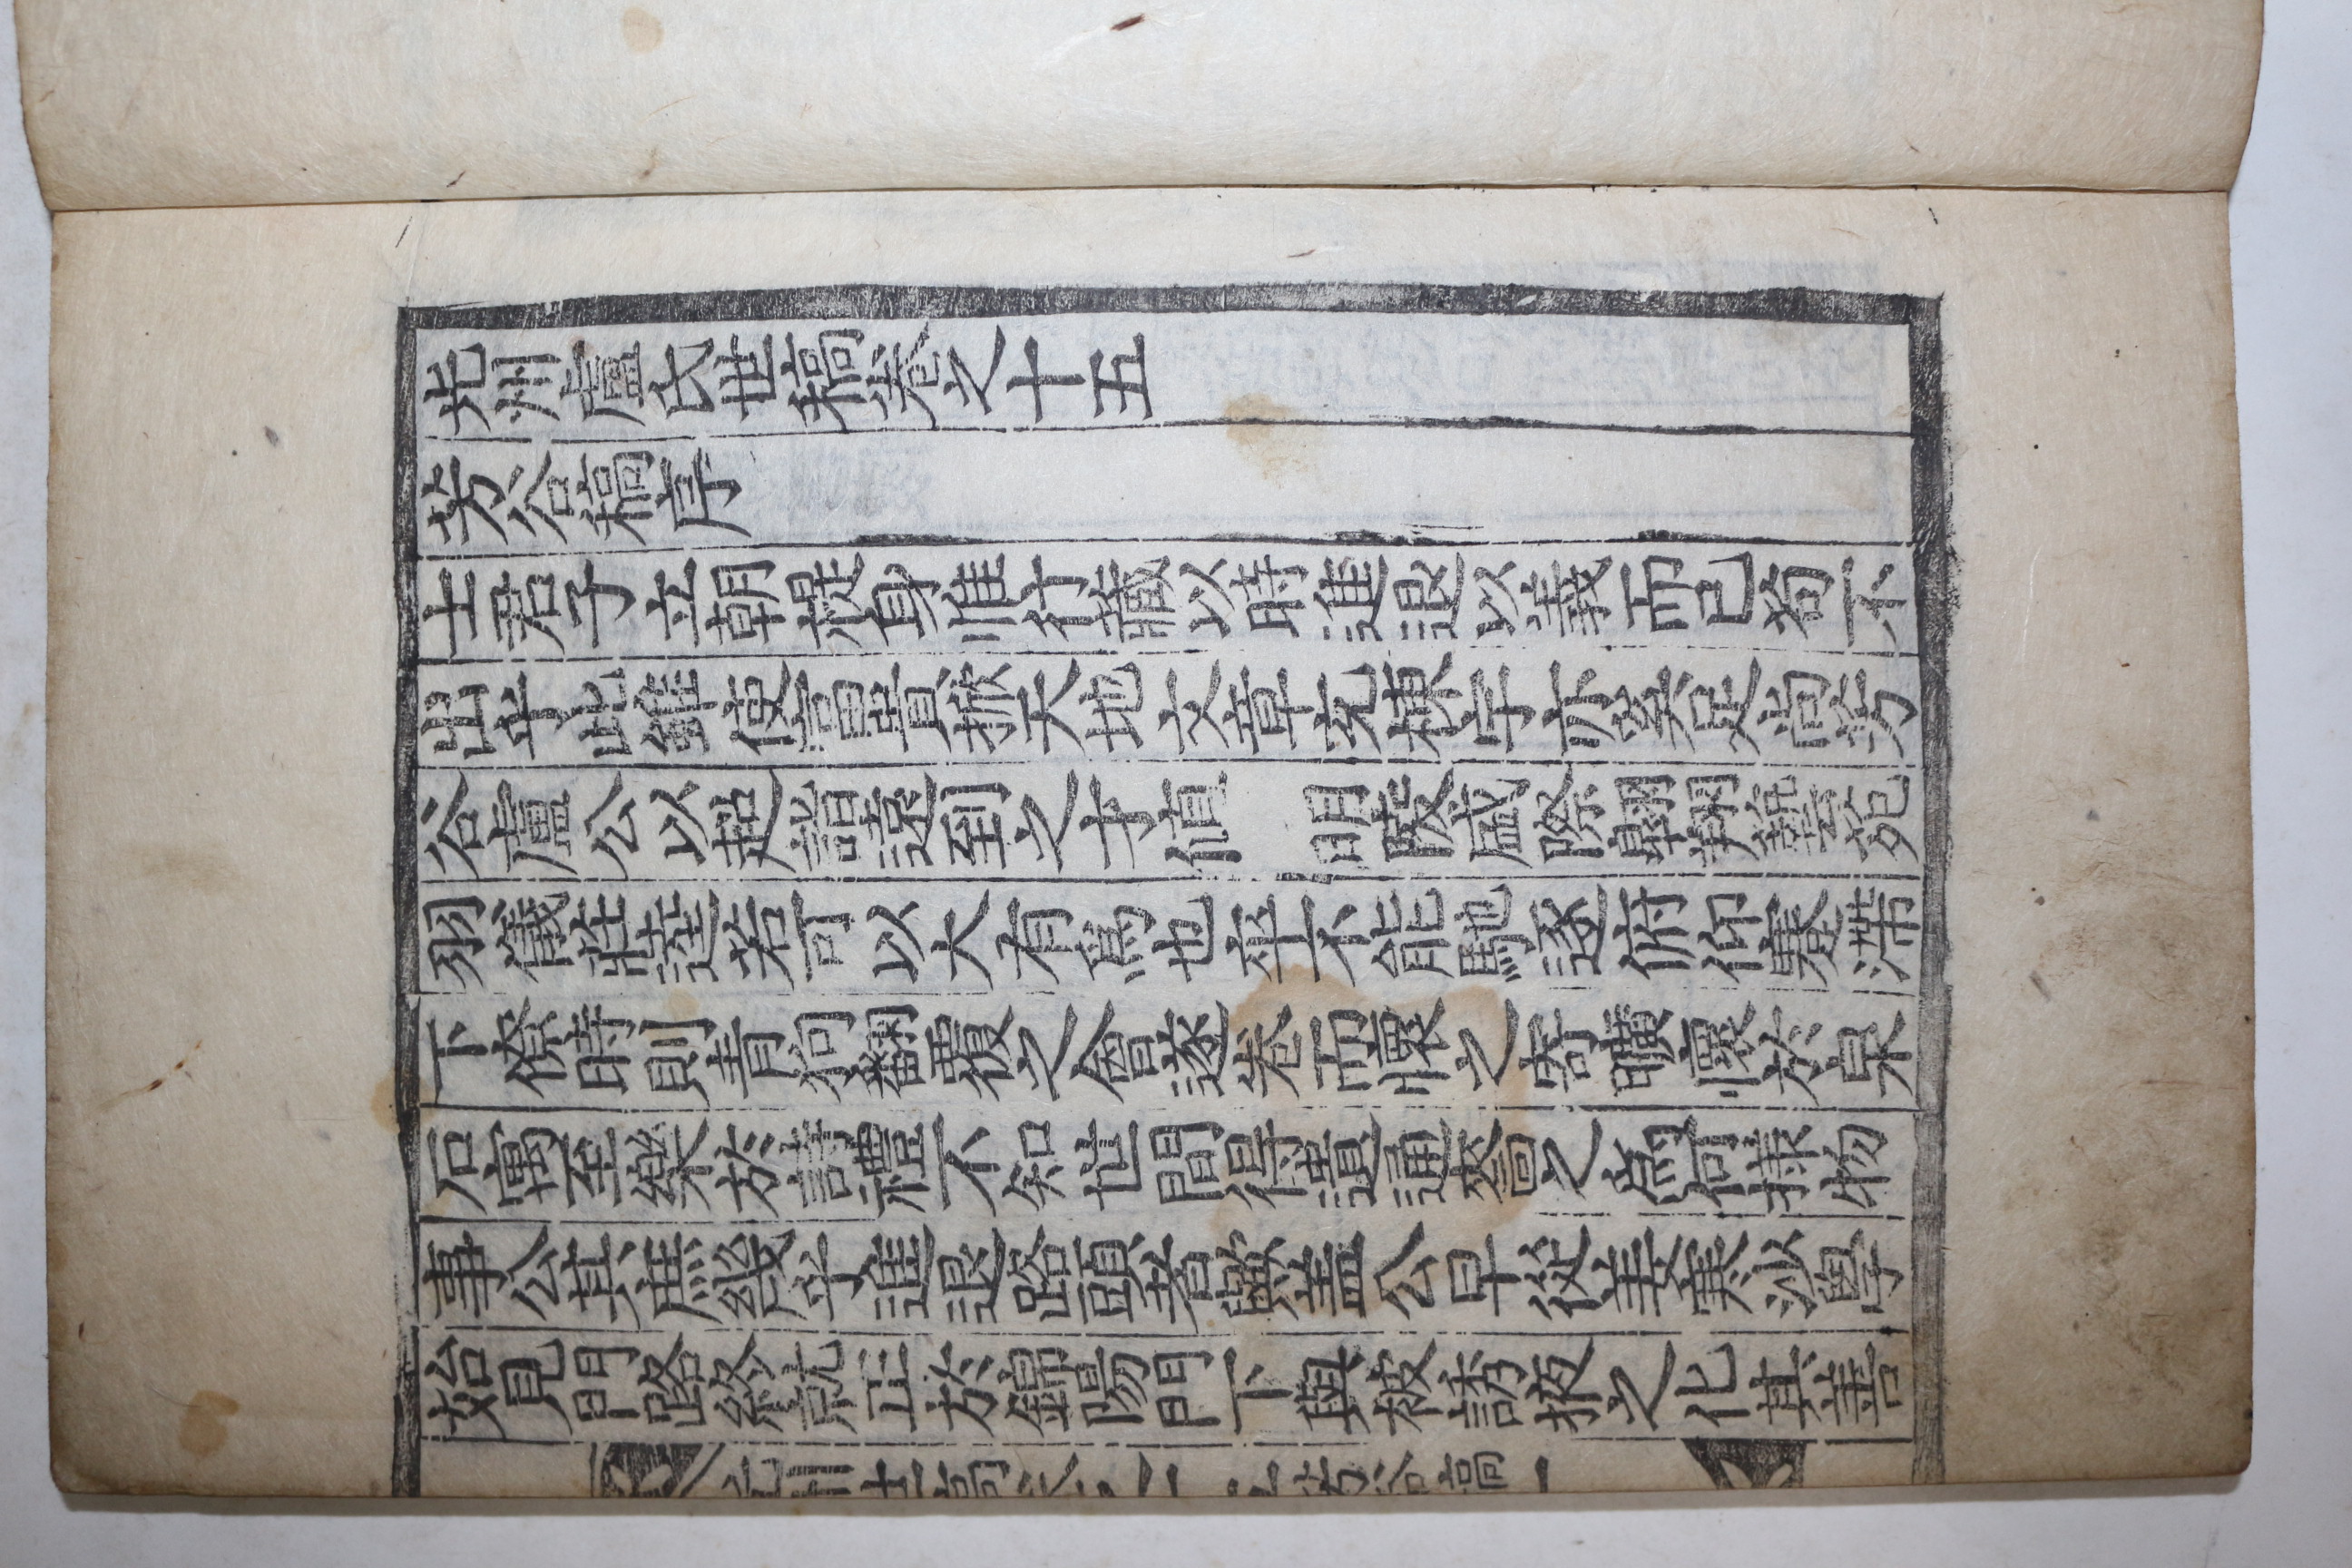 光州盧氏世稿卷之十五
芳谷稿序
士君子立朝禔身惟行藏以時進退以義而已苟不
出乎此雖使富貴掀天地文章充棟宇亦奚足尚芳
谷盧公以超詣遠到之才值　明陵盛際翶翔藝苑
羽儀莊逵若可以大有爲也卒不能馳逐俯仰蹇滯
下僚時則青狗翻覆之會遂卷而懷之寄曠懷於泉
石寓至樂於詩禮不知世間得遺通嗇之爲何㨾物
事公其庶幾乎進退路頭者歟盖公早從姜寒沙學
始見門路終就正於錦陽門下與被誘掖之化其善
芳谷稿　一